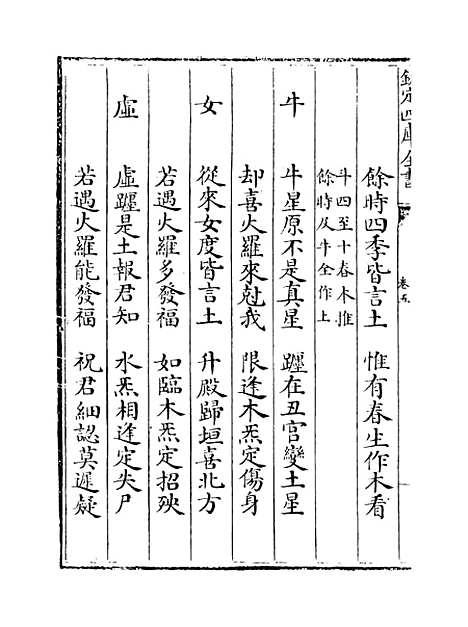 欽定四庫全書
卷五
餘時四季皆言土　惟有春生作木看
斗四至十春木推
餘時及牛全作土
牛　牛星原不是真星　躔在丑宮變土星
却喜火羅來尅我　限逢木炁定傷身
女　從來女度皆言土　升殿歸垣喜北方
若遇火羅多發福　如臨木炁定招殃
虛　虛躔是土報君知　水炁相逢定失尸
若遇火羅能發福　祝君細認莫遲疑